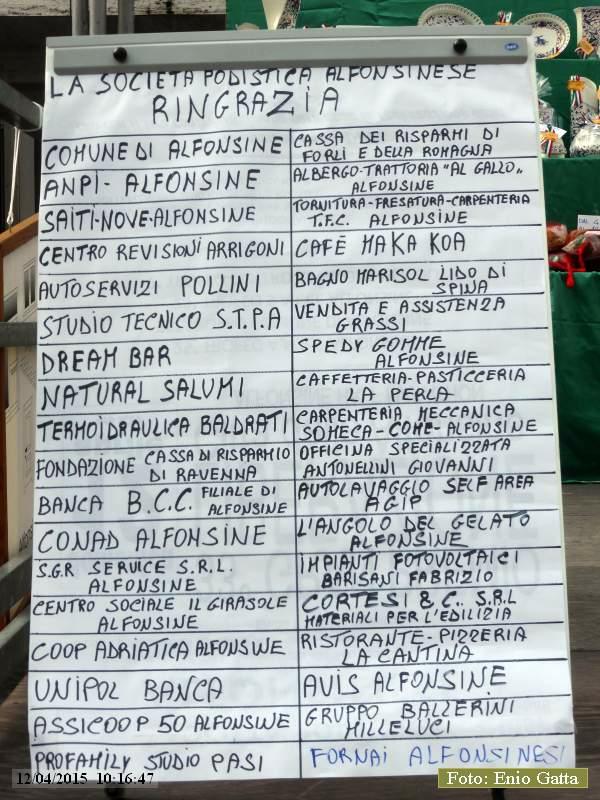 LA SOCIETÀ PODISTICA ALFONSINESE
RINGRAZIA
COMUNE DI ALFONSINE
ANPI- ALFONSINE
SAITI-NOVE-ALFONSINE
CENTRO REVISIONI ARRIGONI
AUTOSERVIZI POLLINI
STUDIO TECNICO S.T.P.A
DREAM BAR
NATURAL SALUMI
TERMOIDRAULICA BALDRATI
FONDAZIONE CASSA DI RISPARMIO
DI RAVENNA
BANCA B.C.C. FILIALE DI
ALFONSINE
CONAD ALFONSINE
S.G.R SERVICE S.R.L.
ALFONSINE
CENTRO SOCIALE IL GIRASOLE
ALFONSINE
COOP ADRIATICA ALFONSINE
UNIPOL BANCA
ASSICOOP 50 ALFONSINE
PROFAMILY STUDIO PASI
CASSA DEI RISPARMI DI
FORLÌ E DELLA ROMAGNA
ALBERGO-TRATTORIA "AL GALLO"
ALFONSINE
TORNITURA-FRESATURA-CARPENTERIA
T.F.C. ALFONSINE
CAFÈ MAKA KOA
BAGNO MARISOL LIDO DI
SPINA
VENDITA E ASSISTENZA
GRASSI
SPEDY GOMME
ALFONSINE
CAFFETTERIA-PASTICCERIA
LA PERLA
CARPENTERIA MECCANICA
SOMECA-COME-ALFONSINE
OFFICINA SPECIALIZZATA
ANTONELLINI GIOVANNI
AUTOLAVAGGIO SELF AREA
AGIP
L'ANGOLO DEL GELATO
ALFONSINE
IMPIANTI FOTOVOLTAICI
BARISANI FABRIZIO
CORTESI & C.. S.R.L
MATERIALI PER L'EDILIZIA
RISTORANTE-PIZZERIA
LA CANTINA
AVIS ALFONSINE
GRUPPO BALLERINI
MILLELUCI
FORNAI ALFONSINESI
12/04/2015 10:16:47
Foto: Enio Gatta